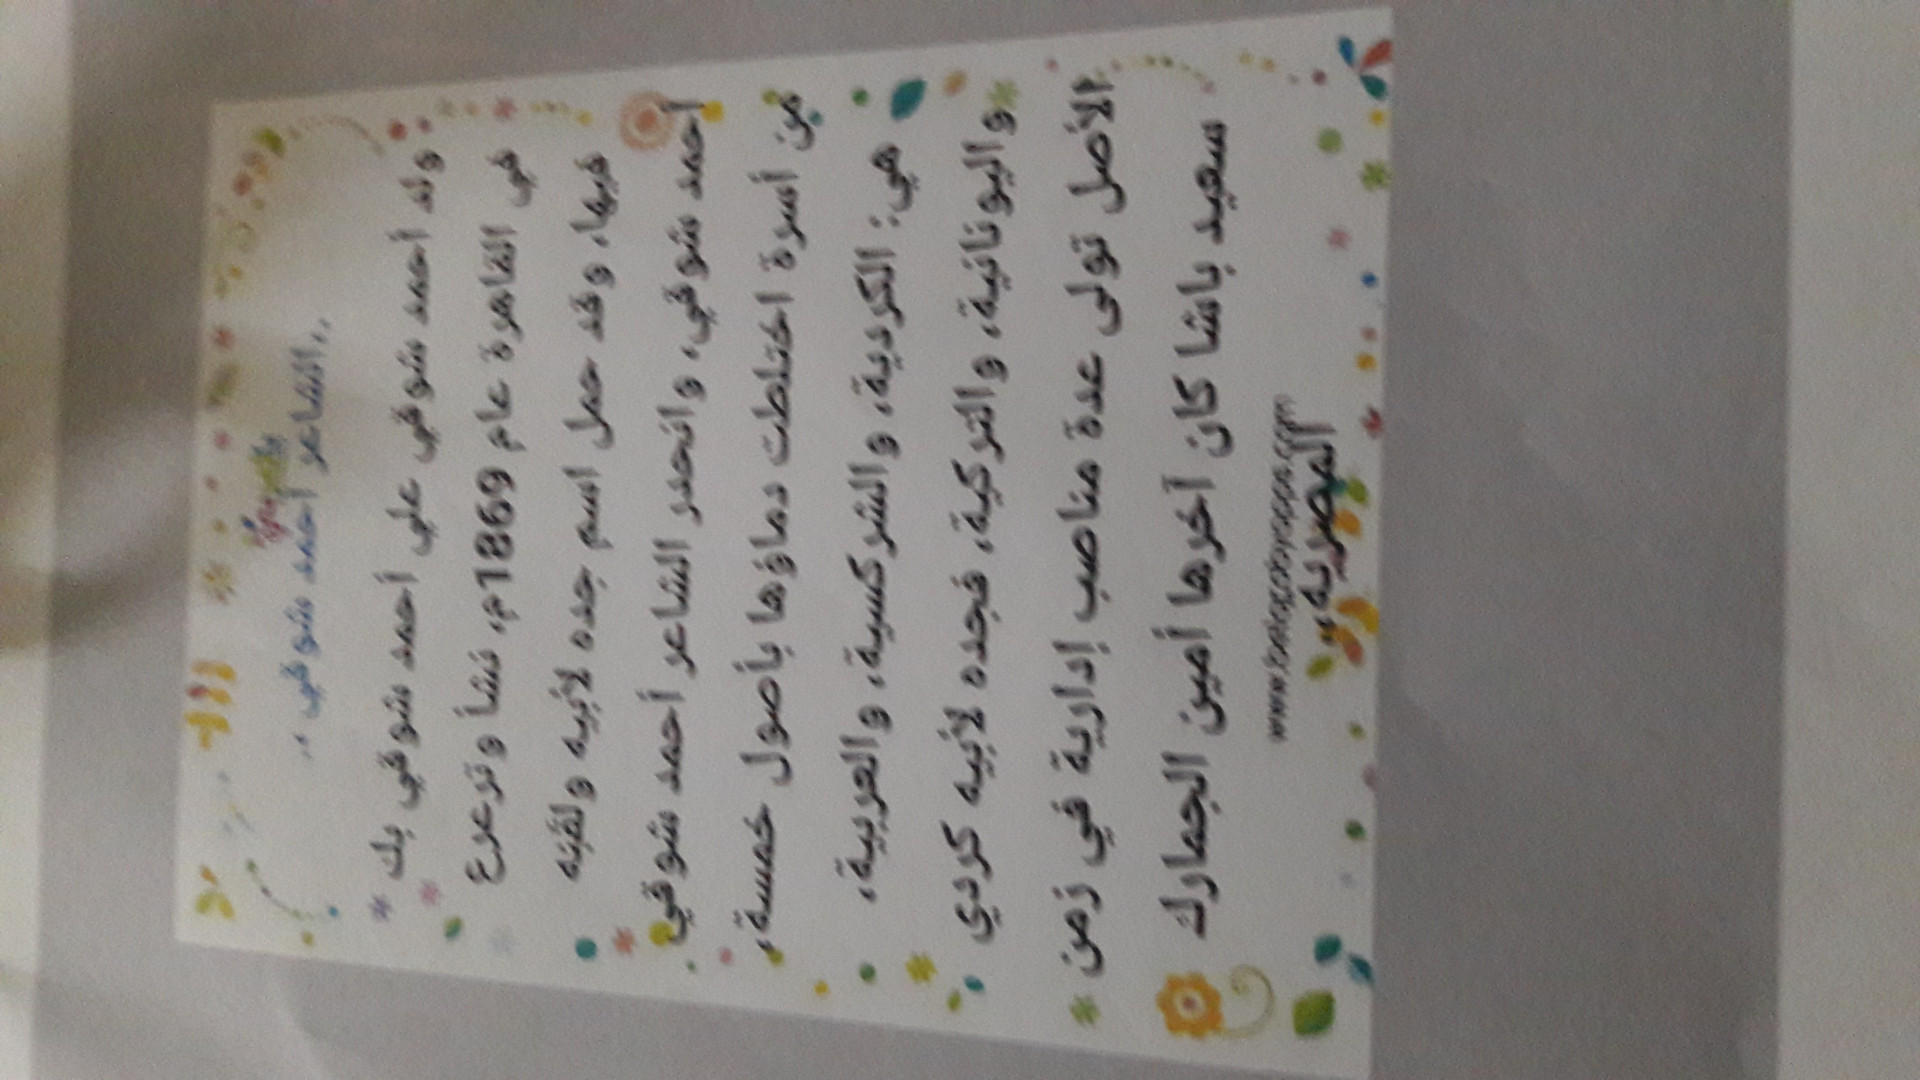 "الشاعر أحمد شوقي"
ولد أحمد شوقي علي أحمد شوقي بك
في القاهرة عام 1869م، نشأ وترعرع
فيها، وقد حمل اسم جده لأبيه ولقبه
أحمد شوقي، وانحدر الشاعر أحمد شوقي
من أسرة اختلطت دماؤها بأصول خمسة،
هي: الكردية، والشركسية، والعربية،
واليونانية، والتركية، فجده لأبيه كردي
الأصل تولى عدة مناصب إدارية في زمن
سعيد باشا كان آخرها أمين الجمارك
المصرية"